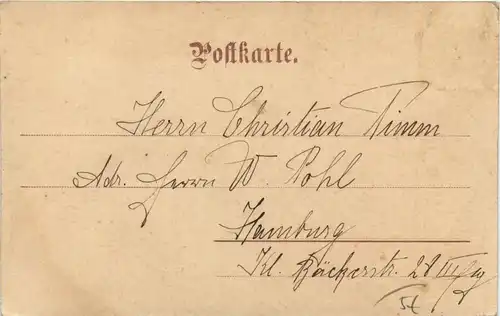 Postkarte.
Herrn Christian Timm
Adr. Herrn W. Pohl
Hamburg
Kl. Bäckerstr. 28 III